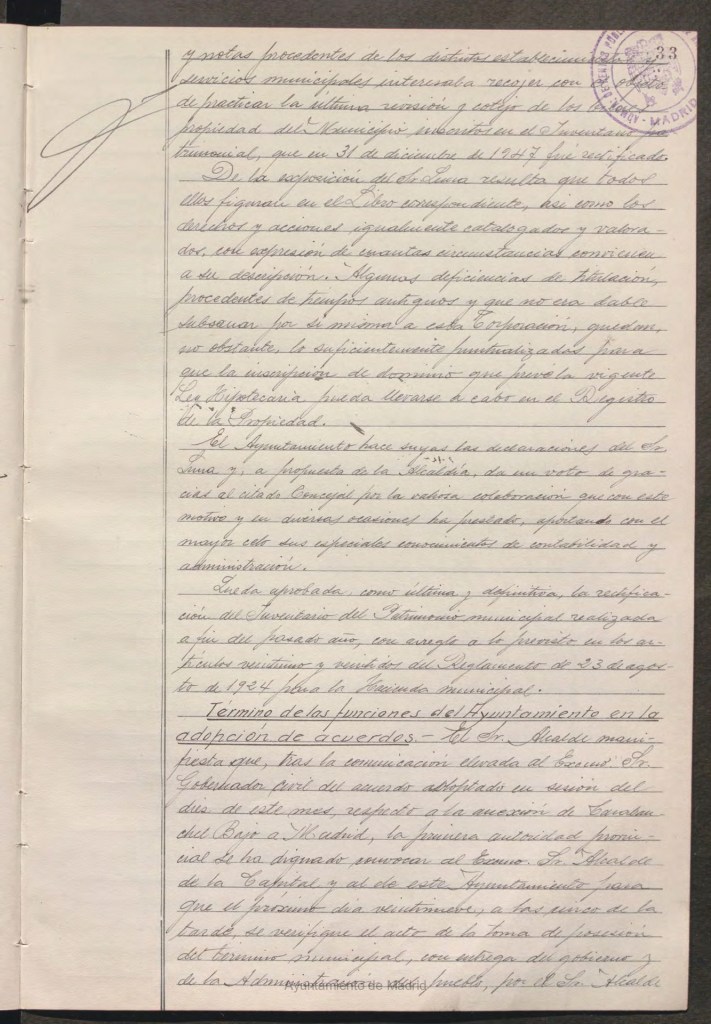 33
MADRID
y notas procedentes de los distintos establecimientos y
servicios municipales interesaba recojer con objeto
de practicar la última revisión y cotejo de los
propiedad del Municipio, inscritos en el Inventario pa-
trimonial, que en 31 de diciembre de 1947 fué rectificado.
De la exposición del Sr Luna resulta que todos
ellos figuran en el Libro correspondiente, asi como los
derechos y acciones igualmente catalogados y valora-
dos, con expresión de cuantas circunstancias convienen
a su descripción. Algunas deficiencias de titulación,
procedentes de tiempos antiguos y que no era dable
subsanar por si misma a esta Corporación, quedan,
no obstante, lo suficientemente puntualizadas para
que la inscripción de dominio que prevé la vigente
Ley Hipotecaria pueda llevarse a cabo en el Registro
de la Propiedad.
El Ayuntamiento hace suyas las declaraciones del Sr
Luna y, a propuesta de la Alcaldía, da un voto de gra-
cias al citado Concejal por la valiosa colaboración que con este
motivo y en diversas ocasiones ha prestado, aportando con el
mayor celo sus especiales conocimientos de contabilidad y
administración.
Queda aprobada, como última y definitiva, la rectifica-
ción del Inventario del Patrimonio municipal realizada
a fin del pasado año, con arreglo a lo previsto en los ar-
tículos veintiuno y veintidos del Reglamento de 23 de agos-
to de 1924 para la Hacienda municipal.
Término de las funciones del Ayuntamiento en la
adopción de acuerdos - El Sr. Alcalde mani-
fiesta que, tras la comunicación elevada al Excmo. Sr.
Gobernador Civil del acuerdo adoptado en sesión del
dies de este mes, respecto a la anexión de Caraban-
chel Bajo a Madrid, la primera autoridad provin-
cial se ha dignado convocar al Excmo. Sr. Alcalde
de la Capital y al de este Ayuntamiento para
que el próximo dia veintinueve, a las cinco de la
tarde, se verifique el acto de la toma de posesión
del término municipal, con entrega del gobierno y
de la Administración del pueblo, por el Sr. Alcalde
Ayuntamiento de Madrid